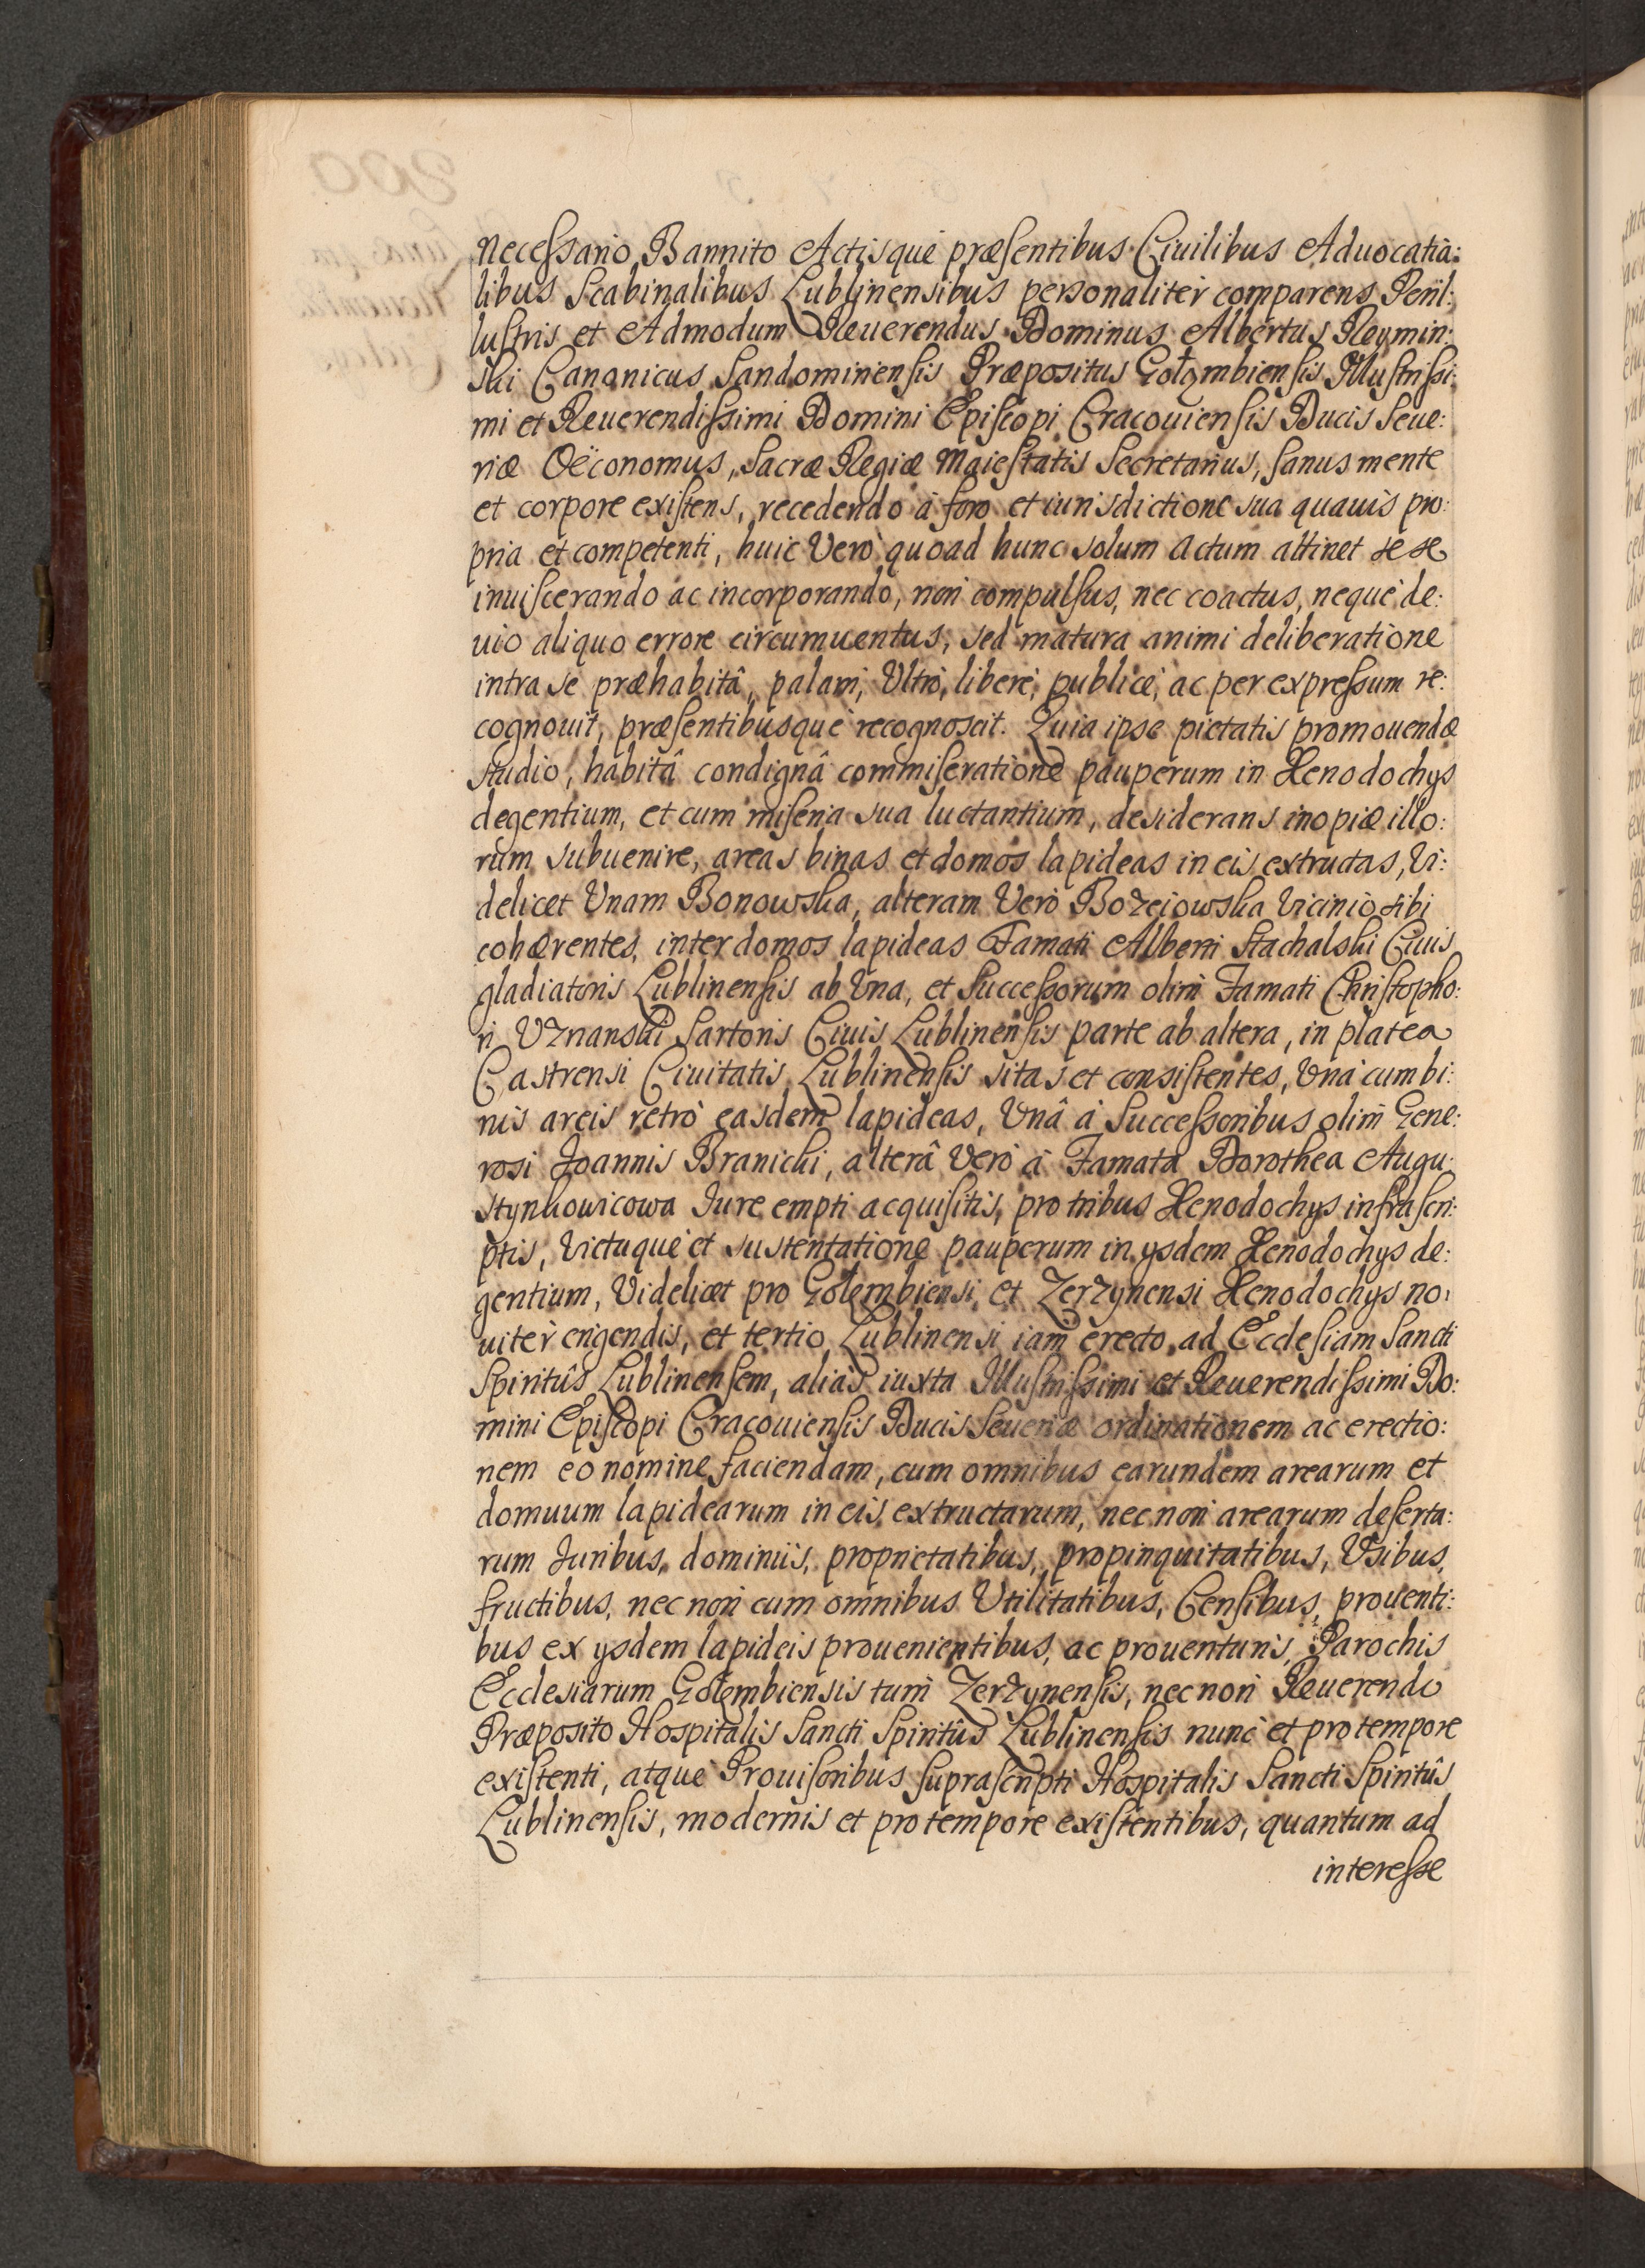 necessario Bannito Actisquè præsentibus Ciuilibus Aduocatia:
libus Scabinalibus Lublinensibus personalitèr comparens Peril:
lustris et Admodum Reuerendus Dominus Albertus Reymin:
ski Canonicus Sandominensis Præpositus Gołęmbiensis Illustrissi:
mi et Reuerendissimi Domini Episcopi Cracouiensis Ducis Seue:
riæ Oëconomus, Sacræ Regiæ Maiestatis Secretarius, sanus mente
et corpore existens, recedendo à foro et iurisdictione sua quauis pro:
pria et competenti, huic Verò quoad hunc solum actum attinet sese
inuiscerando ac incorporando, non compulsus, nec coactus, nequè de:
uio aliquo errore circumuentus, sed matura animi deliberatione
intra se præhabitâ, palam, Vltrò, liberè, publicè, ac per expressum re:
cognouit, præsentibusquè recognoscit. Quia ipse pietatis promouendæ
studio, habitâ condignâ commiseratione pauperum in Xenodochys
degentium, et cum miseria sua luctantium, desiderans inopiæ illo:
rum subuenire, areas binas et domos lapideas in eis extructas, Vi:
delicet Vnam Bonowska, alteram Verò Bozeiowska Vicinio sibi
cohærentes, inter domos lapideas Famati Alberti Stachalski Ciuis
gladiatoris Lublinensis ab Vna, et Successorum olim Famati Christopho:
ri Vznanski Sartoris Ciuis Lublinensis parte ab altera, in platea
Castrensi Ciuitatis Lublinensis sitas et consistentes, Vnà cum bi:
nis areis retrò easdem lapideas, Vnâ à Successoribus olim Gene:
rosi Joannis Branicki, alterâ Verò à Famata Dorothea Augu:
stynkowicowa Jure empti acquisitis, pro tribus Xenodochys infrascri:
ptis, Victuquè et sustentatione pauperum in ysdem Xenodochys de:
gentium, Videlicet pro Gołęmbiensi, et Zerzynensi Xenodochys no:
uitèr erigendis, et tertio Lublinensi iam erecto, ad Ecclesiam Sancti
Spiritûs Lublinensem, aliàs iuxta Illustrissimi et Reuerendissimi Do:
mini Episcopi Cracouiensis Ducis Seueriæ ordinationem ac erectio:
nem eo nomine faciendam, cum omnibus earundem arearum et
domuum lapidearum in eis extructarum, nec non arearum deserta:
rum Juribus, dominiis, proprietatibus, propinquitatibus, Vsibus,
fructibus, nec non cum omnibus Vtilitatibus, Censibus, prouenti:
bus ex ysdem lapideis prouenientibus, ac prouenturis, Parochis
Ecclesiarum Gołęmbiensis tum Zerzynensis, nec non Reuerendo
Præposito Hospitalis Sancti Spiritûs Lublinensis nunc et pro tempore
existenti, atquè Prouisoribus suprascripti Hospitalis Sancti Spiritûs
Lublinensis, modernis et pro tempore existentibus, quantum ad
interesse